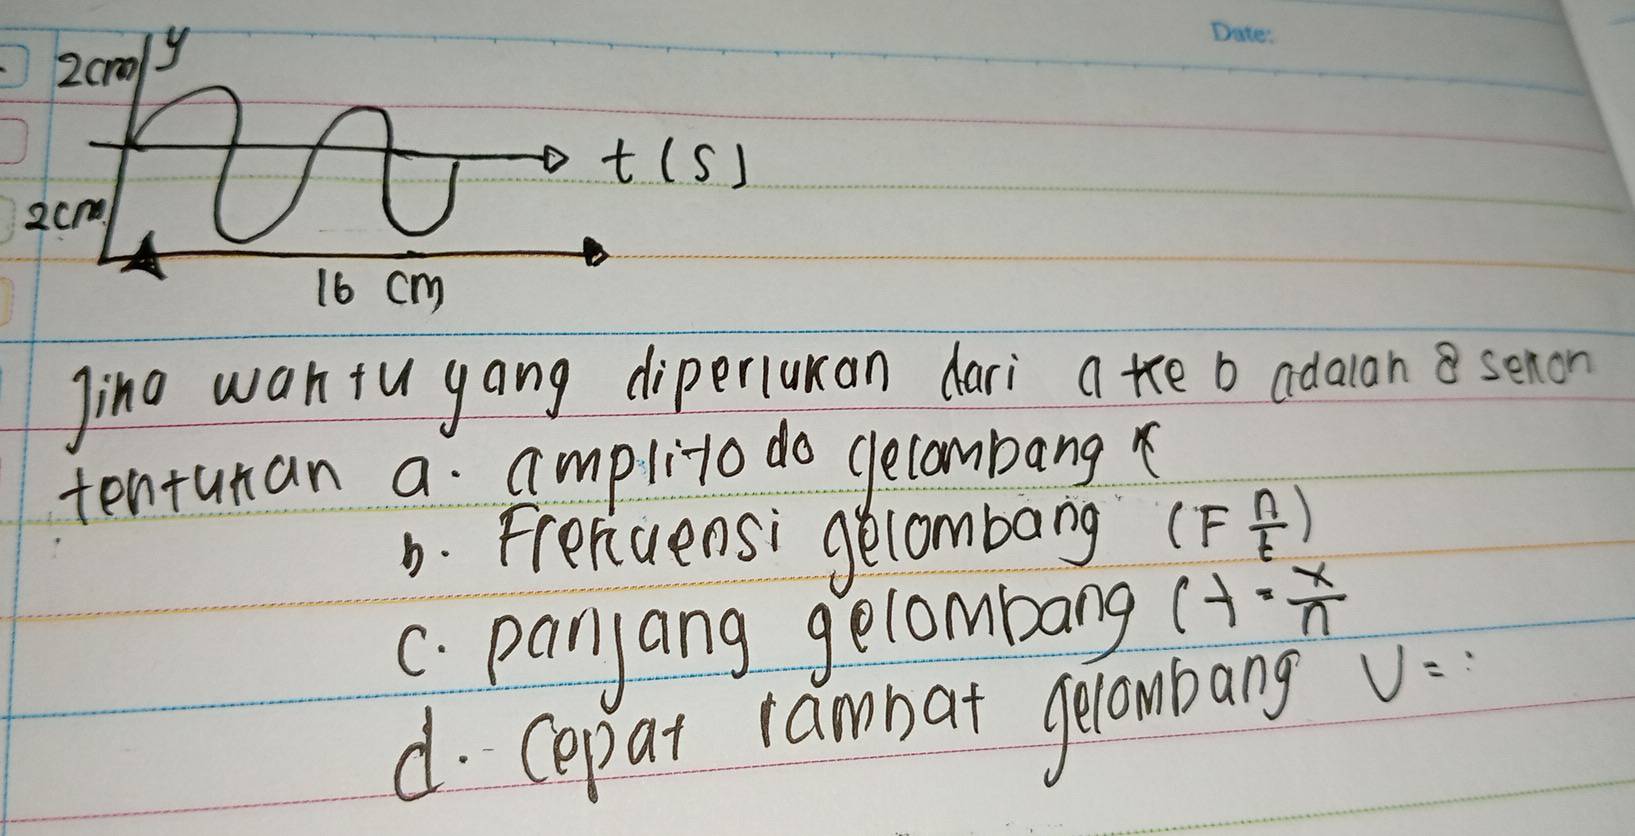 Date:
2cm y
t (s)
2cm
16 cm
Jika waktu yang diperlukan dari a ke b adalah 8 sekon
tentukan a. amplitodo gelombang
b. Frekuensi gelombang (F n/t)
c. panjang gelombang (λ = x/n
d. Cepat rambat gelombang V = :